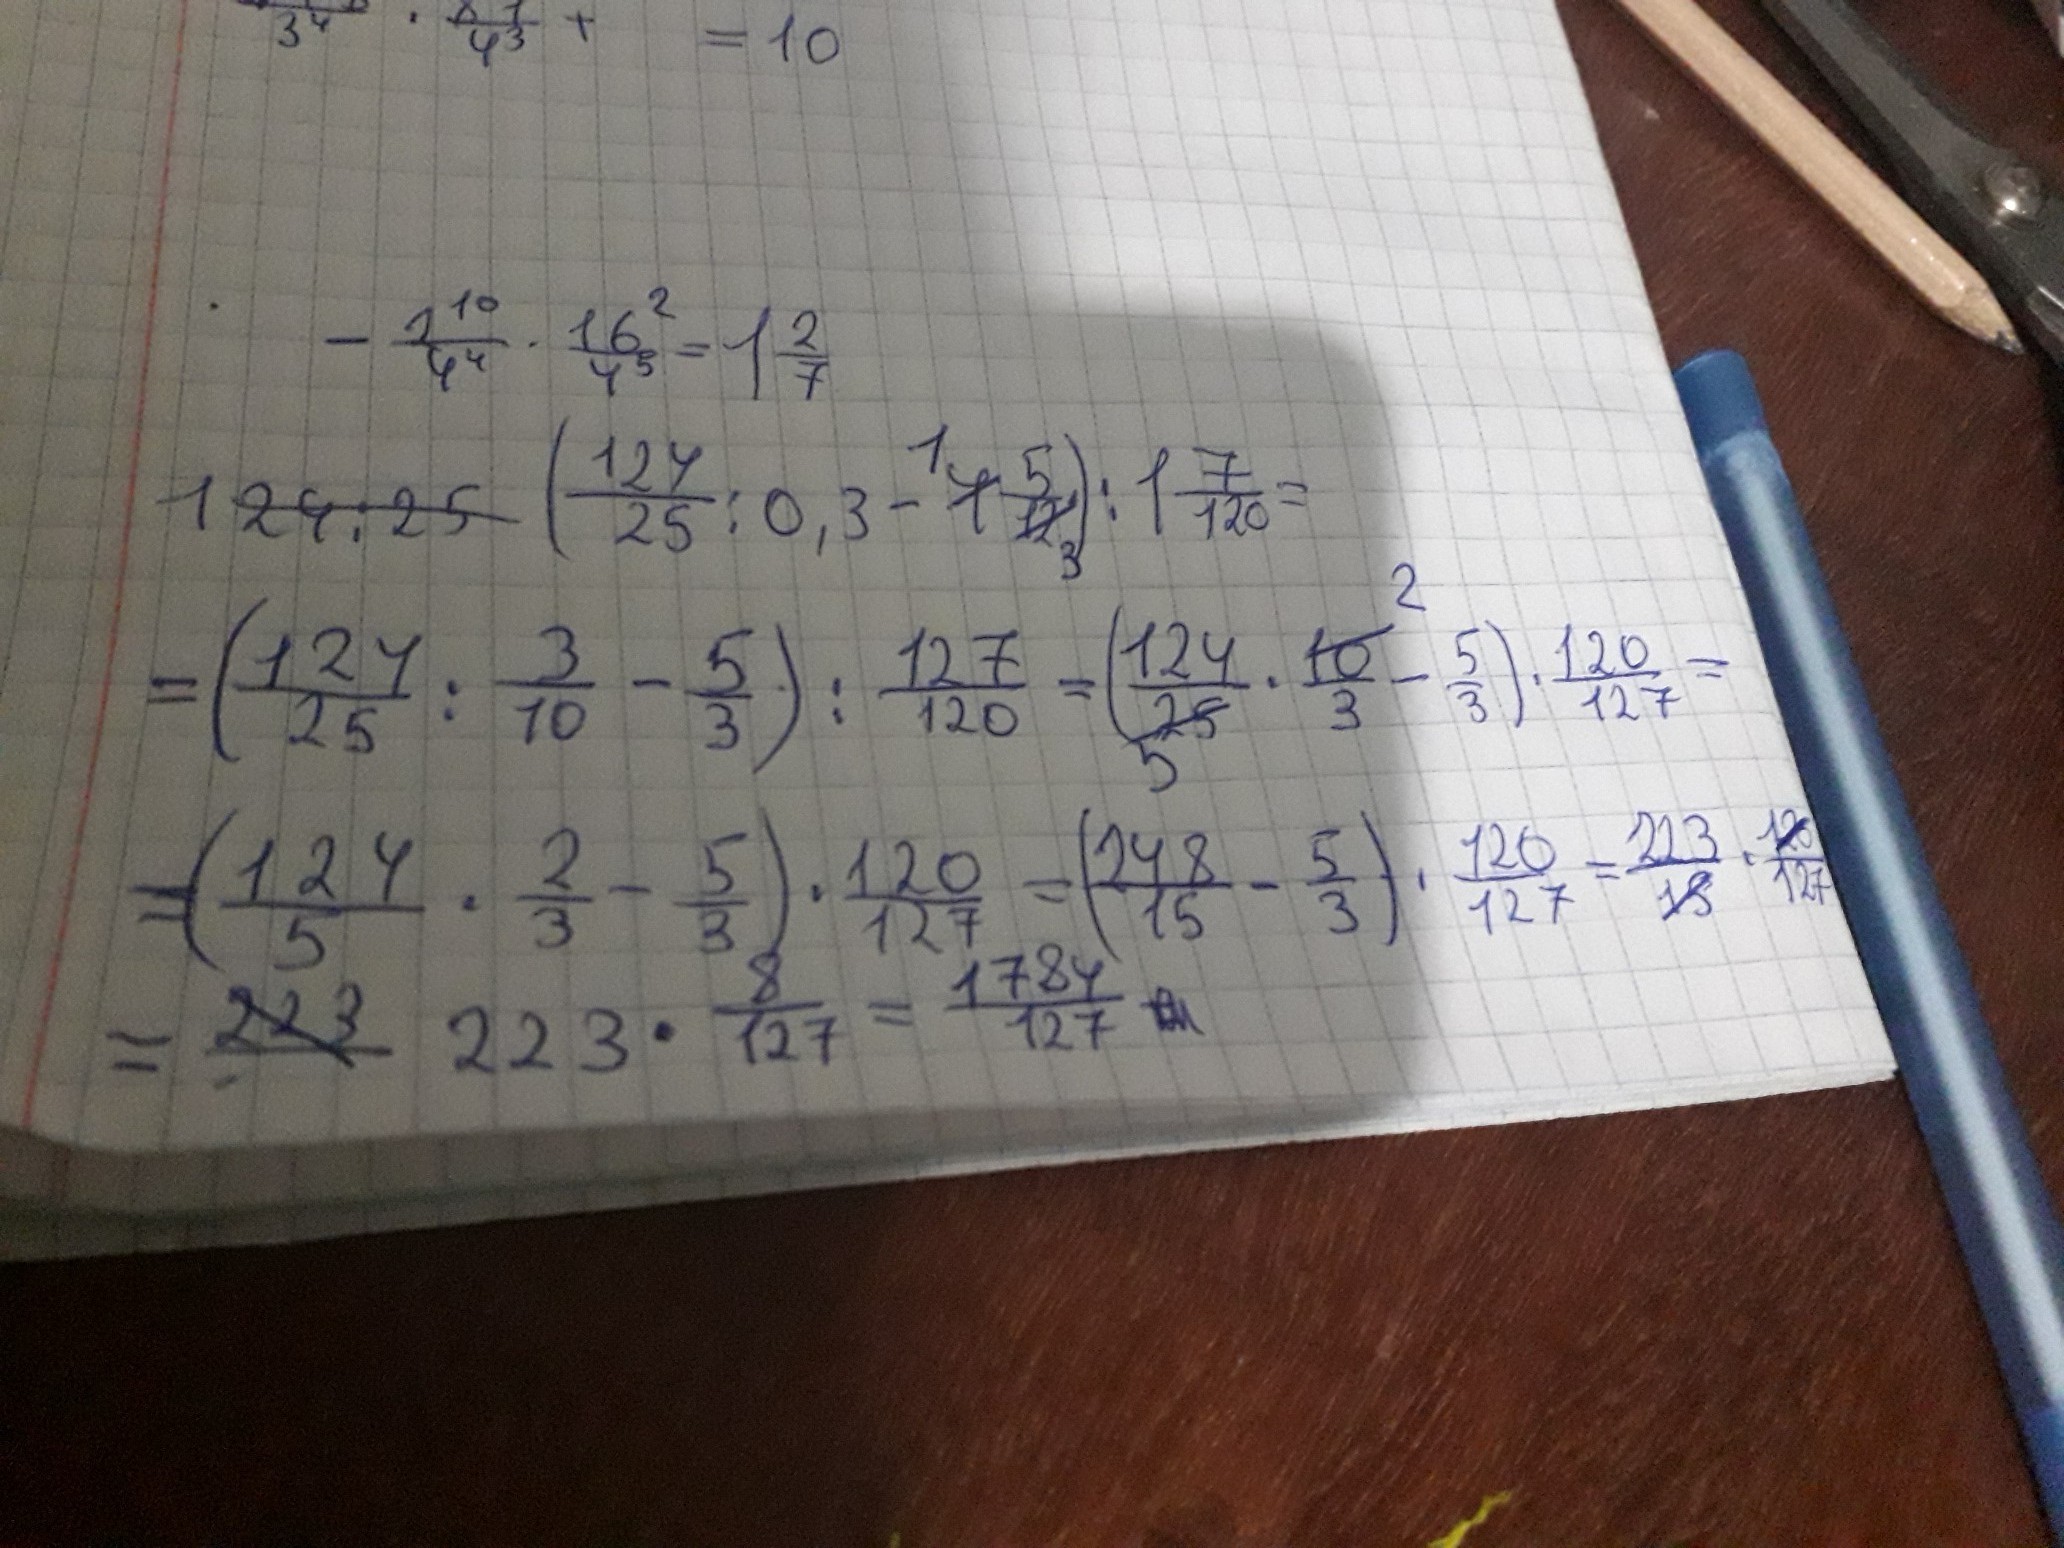 3⁴ · 4³ + = 10
- 2¹⁰/4⁴ · 16²/4⁵ = 1 2/7
1 24:25 (124/25 : 0,3 - 1 4 5/12 3) : 1 7/120 =
= (124/25 : 3/10 - 5/3) : 127/120 = (124/25 5 · 10/3 2 - 5/3) · 120/127 =
= (124/5 · 2/3 - 5/3) · 120/127 = (248/15 - 5/3) · 120/127 = 223/15 · 120/127
= 223 223 · 8/127 = 1784/127